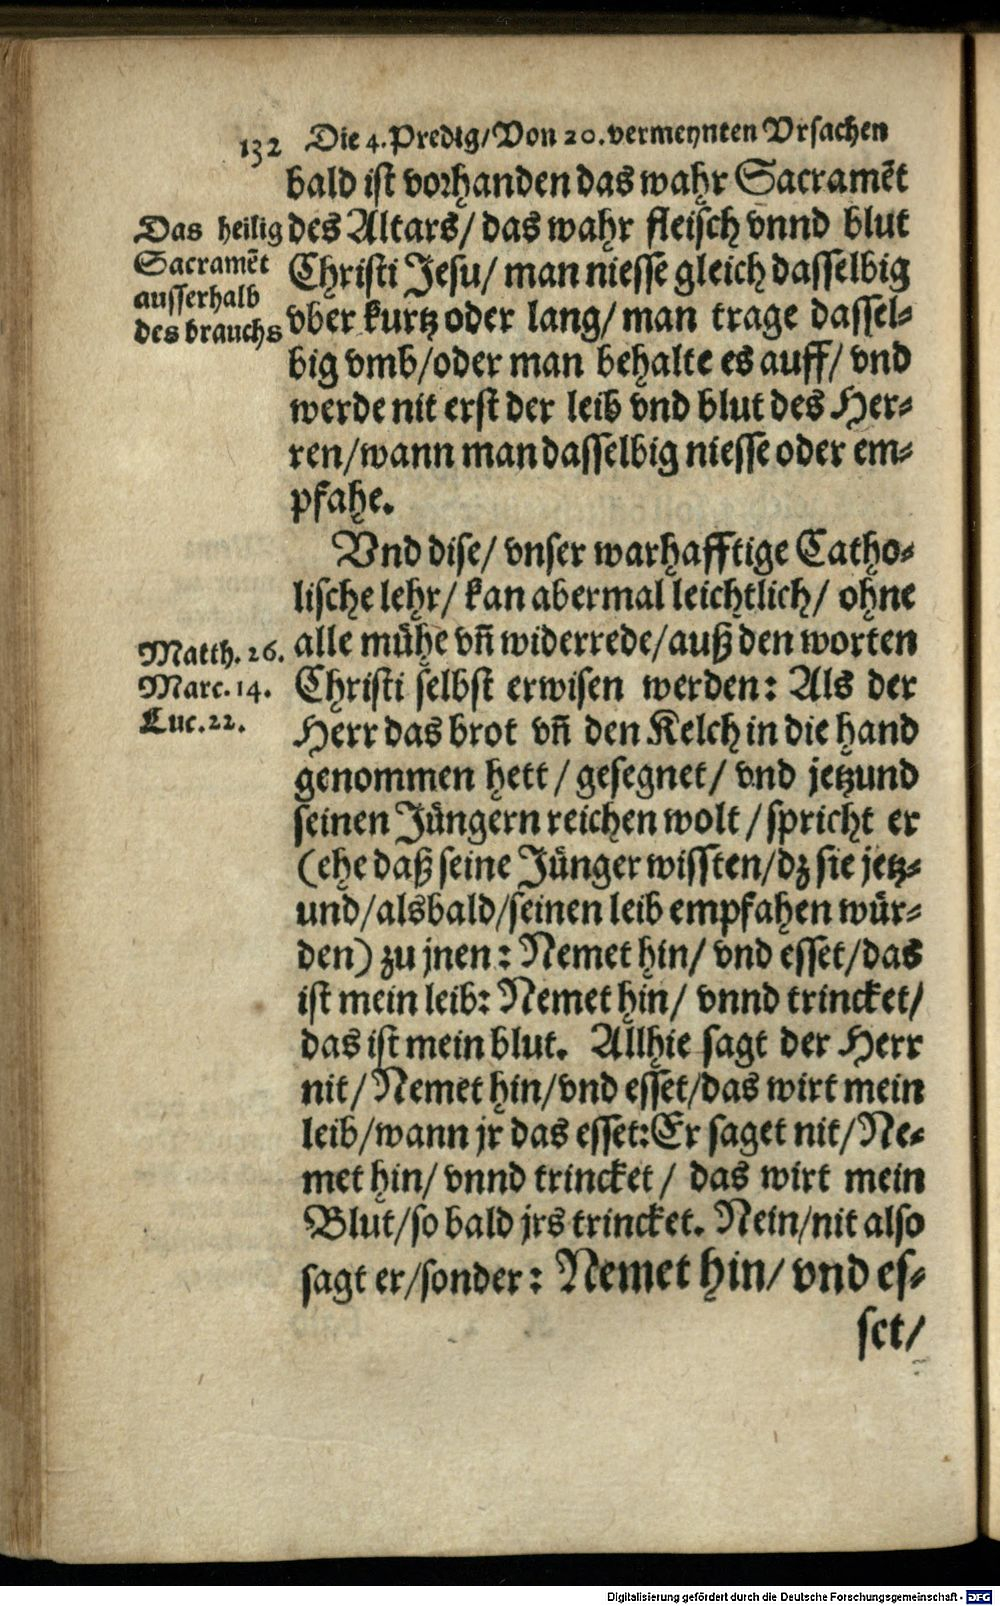 132 Die 4. Predig/Von 20. vermeynten Vrsachen
bald ist vorhanden das wahr Sacramẽt
des Altars/ das wahr fleisch vnnd blut
Christi Jesu/ man niesse gleich dasselbig
vber kurtz oder lang/ man trage dassel-
big vmb/oder man behalte es auff/ vnd
werde nit erst der leib vnd blut des Her-
ren/wann man dasselbig niesse oder em-
pfahe.
Das heilig
Sacramẽt
ausserhalb
des brauchs
Vnd dise/ vnser warhafftige Catho-
lische lehr/ kan abermal leichtlich/ ohne
alle mühe vñ widerrede/auß den worten
Christi selbst erwisen werden: Als der
Herr das brot vñ den Kelch in die hand
genommen hett/ gesegnet/ vnd jetzund
seinen Jüngern reichen wolt/spricht er
(ehe daß seine Jünger wissten/dz sie jetz-
und/alsbald/seinen leib empfahen wür-
den) zu jnen: Nemet hin/ vnd esset/das
ist mein leib: Nemet hin/ vnnd trincket/
das ist mein blut. Allhie sagt der Herr
nit/ Nemet hin/vnd esset/das wirt mein
leib/wann jr das esset: Er saget nit/Ne-
met hin/ vnnd trincket/ das wirt mein
Blut/so bald jrs trincket. Nein/nit also
sagt er/sonder: Nemet hin/ vnd es-
set/
Matth. 26.
Marc. 14.
Luc. 22.
Digitalisierung gefördert durch die Deutsche Forschungsgemeinschaft - DFG